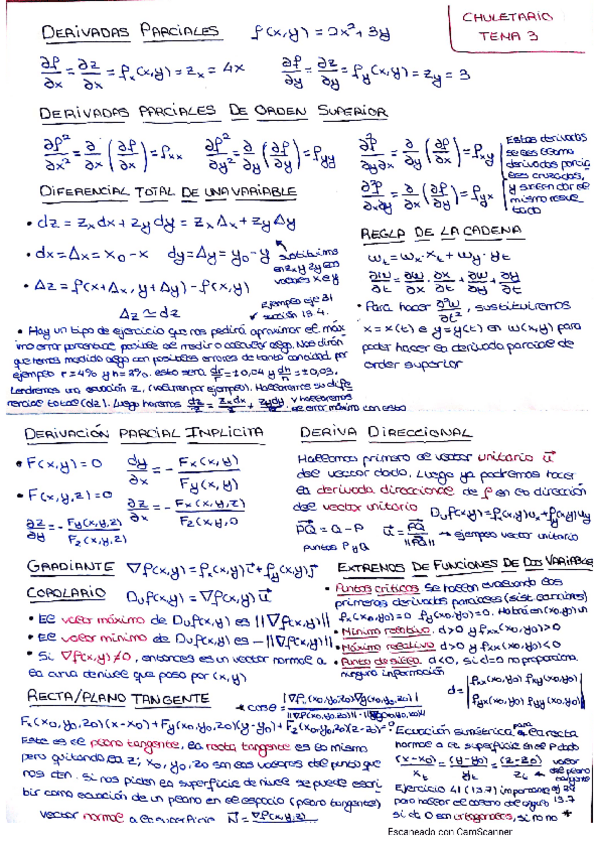 CHULETARIO
TEMA 3
DERIVADAS PARCIALES f(x,y) = 2x² + 3y
∂f/∂x = ∂z/∂x = fx(x,y) = zx = 4x ∂f/∂y = ∂z/∂y = fy(x,y) = zy = 3
DERIVADAS PARCIALES DE ORDEN SUPERIOR
∂f²/∂x² = ∂/∂x (∂f/∂x) = fxx ∂f²/∂y² = ∂/∂y (∂f/∂y) = fyy ∂²f/∂y∂x = ∂/∂y (∂f/∂x) = fxy
∂²f/∂x∂y = ∂/∂x (∂f/∂y) = fyx
Estas derivadas
derivadas parcia
les cruzadas,
mismo resul
tado
DIFERENCIAL TOTAL DE UNA VARIABLE
• dz = zx dx + zy dy = zx Δx + zy Δy
• dx = Δx = x0 - x dy = Δy = y0 - y
sustituimos
en zx y zy los
valores x e y
• Δz = f(x+Δx, y+Δy) - f(x,y)
Δz ≃ dz
Ejemplo eje 31
sección 13.4.
• Hay un tipo de ejercicio que nos pedirá aproximar el máx
imo error porcentual posible al medir o calcular algo. Nos dirán
que hemos medido algo con posibles errores de tanta cantidad, por
ejemplo r = 4% y h = 2%. esto será dr/r = ±0,04 y dh/h = ±0,03.
Tendremos una ecuación z, (volumen por ejemplo). Hallaremos su dife
rencial total (dz). Luego haremos
REGLA DE LA CADENA
wt = wx · xt + wy · yt
∂w/∂t = ∂w/∂x · ∂x/∂t + ∂w/∂y + ∂y/∂t
• Para hacer ∂²w/∂t², sustituiremos
x = x(t) e y = y(t) en w(x,y) para
poder hacer la derivada parcial de
orden superior
DERIVACIÓN PARCIAL IMPLÍCITA
• F(x,y) = 0 dy/∂x = - Fx(x,y)/Fy(x,y)
• F(x,y,z) = 0 ∂z/∂x = - Fx(x,y,z)/Fz(x,y,
∂z/∂y = - Fy(x,y,z)/Fz(x,y,z)
DERIVA DIRECCIONAL
Hallamos primero el vector unitario u
del vector dado. Luego ya podremos hacer
la derivada direccional de f en la dirección
del vector unitario Duf(x,y) = fx(x,y)ux + fy(x,y)uy
PQ = Q - P u = PQ/||PQ|| → ejemplo vector unitario
puntos P y Q
GRADIANTE ∇f(x,y) = fx(x,y)i + fy(x,y)j
COROLARIO Duf(x,y) = ∇f(x,y) u
• El valor máximo de Duf(x,y) es ||∇f(x,y)||
• El valor mínimo de Duf(x,y) es - ||∇f(x,y)||
• Si ∇f(x,y) ≠ 0, entonces es un vector normal a
la curva de nivel que pasa por (x,y)
EXTREMOS DE FUNCIONES DE DOS VARIABLE
• Puntos críticos Se hallan evaluando las
primeras derivadas parciales
fx(x0,y0) = 0 fy(x0,y0) = 0.
• Mínimo relativo, d>0 y fxx(x0,y0)>0
• Máximo relativo d>0 y fxx(x0,y0)<0
• Punto de silla d<0, si d=0 no proporciona
ninguna información
d = | fxx(x0,y0) fxy(x0,y0) |
| fyx(x0,y0) fyy(x0,y0) |
RECTA/PLANO TANGENTE
Fx(x0,y0,z0)(x-x0) + Fy(x0,y0,z0)(y-y0) + Fz(x0,y0,z0)(z-z0) =
Este es el plano tangente, la recta tangente es lo mismo
pero quitando la z; x0, y0, z0 son los valores del punto que
nos den. Si nos piden la superficie de nivel se puede escri
bir como ecuación de un plano en el espacio (plano tangente)
vector normal a la superficie N = ∇F(x,y,z)
• Ecuación simétrica para la recta
normal a la superficie en el P dado
(x-x0)/xt = (y-y0)/yt = (z-z0)/zt
Ejercicio 41 (13.7) importante
para hallar el 13.7
si son ortogonales, si no *
Escaneado con CamScanner